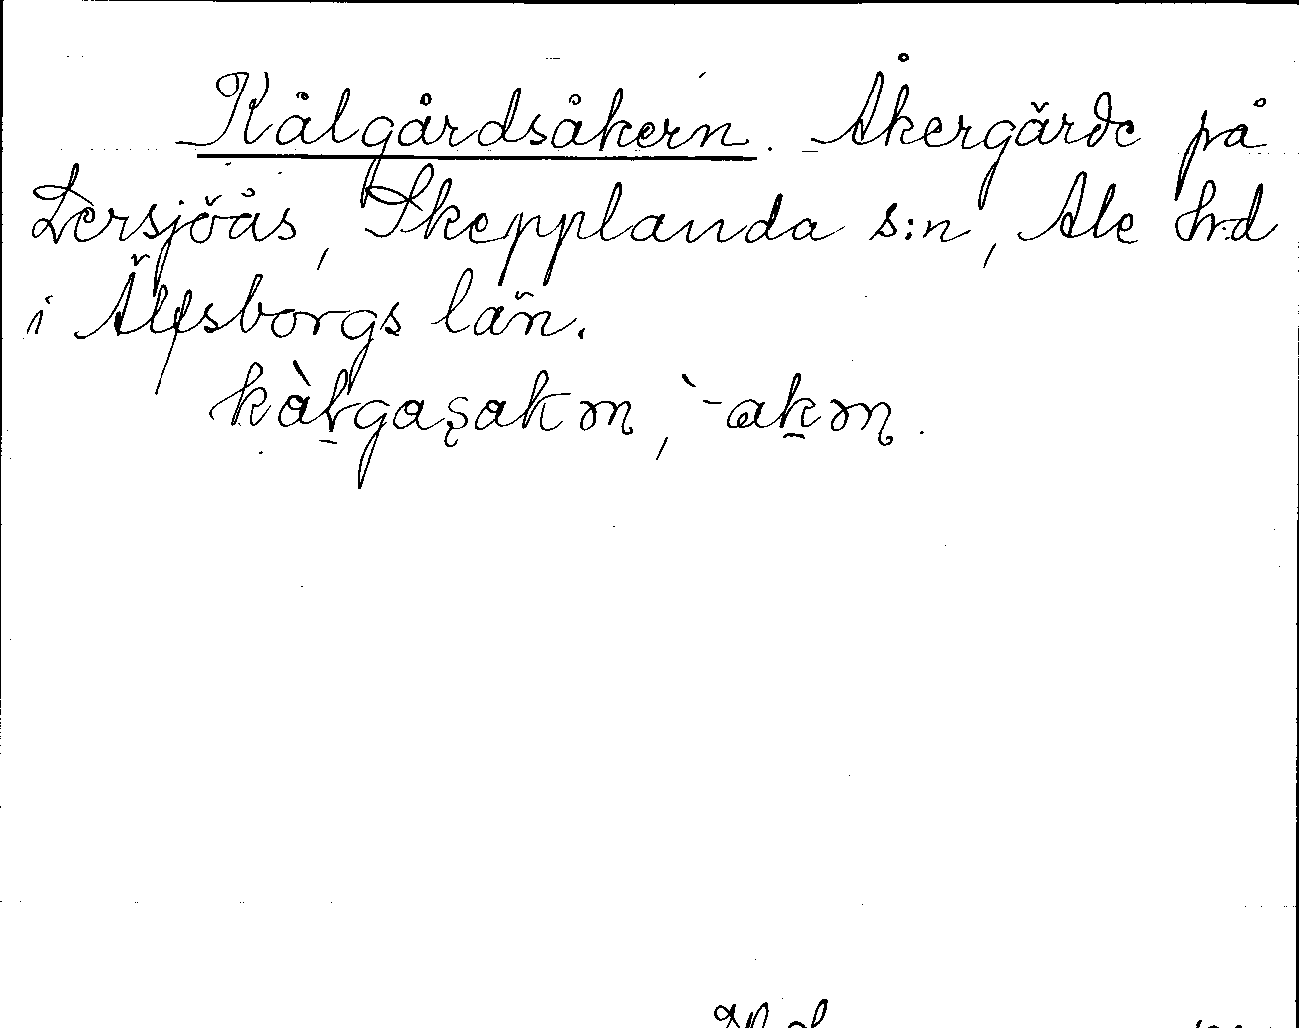 Kålgårdsåkern. Åkergärde på
Lersjöås, Skepplanda s:n, Ale hrd
i Älfsborgs län.